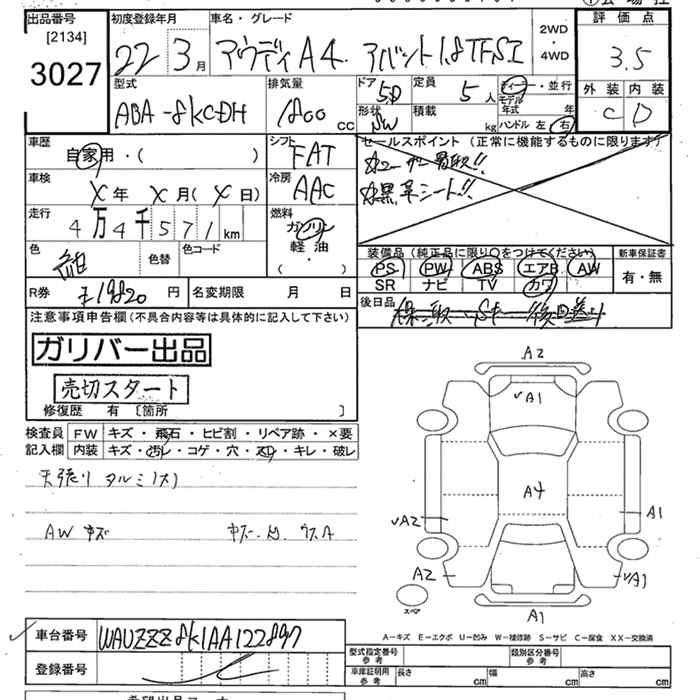 出品番号
[2134]
3027
初度登録年月
22年 3月
車名・グレード
アウディA4 アバント1.8TFSI
2WD
・
4WD
評価点
3.5
外装 内装
C D
型式
ABA-8KCDH
排気量
1800 CC
ドア
5D
定員
5人
ディーラー・並行
モデル年式 年
形状
SW
積載 kg
ハンドル 左 右
車歴
自家用・( )
シフト
FAT
セールスポイント(正常に機能するものに限ります)
黒革シート!!
車検
X年 X月(X日)
冷房
AAC
走行
4万4千571km
燃料
ガソリン
軽油
・( )
色
紺
色替
色コード
装備品(純正品に限り○をつけてください)
PS PW ABS エアB AW
SR ナビ TV カワ
新車保証書
有・無
R券
¥19820円
名変期限 月 日
後日品
注意事項申告欄(不具合内容等は具体的に記入して下さい)
ガリバー出品
売切スタート
修復歴 有 〔箇所 〕
検査員
記入欄
FW キズ・飛石・ヒビ割・リペア跡・×要
内装 キズ・汚レ・コゲ・穴・スレ・キレ・破レ
天張り タルミ(大)
AW キズ
A2
√A1
A4
√A2
A1
A2
√A1
スペア
A1
A-キズ E-エクボ U-凹み W-補修跡 S-サビ C-腐食 XX-交換済
車台番号
WAUZZZ8K1AA122897
登録番号
型式指定番号
参考
類別区分番号
参考
車庫証明用
参考
長さ cm
幅 cm
高さ cm